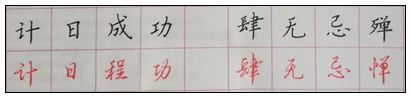 计日成功 肆无忌殚
计日程功 肆无忌惮